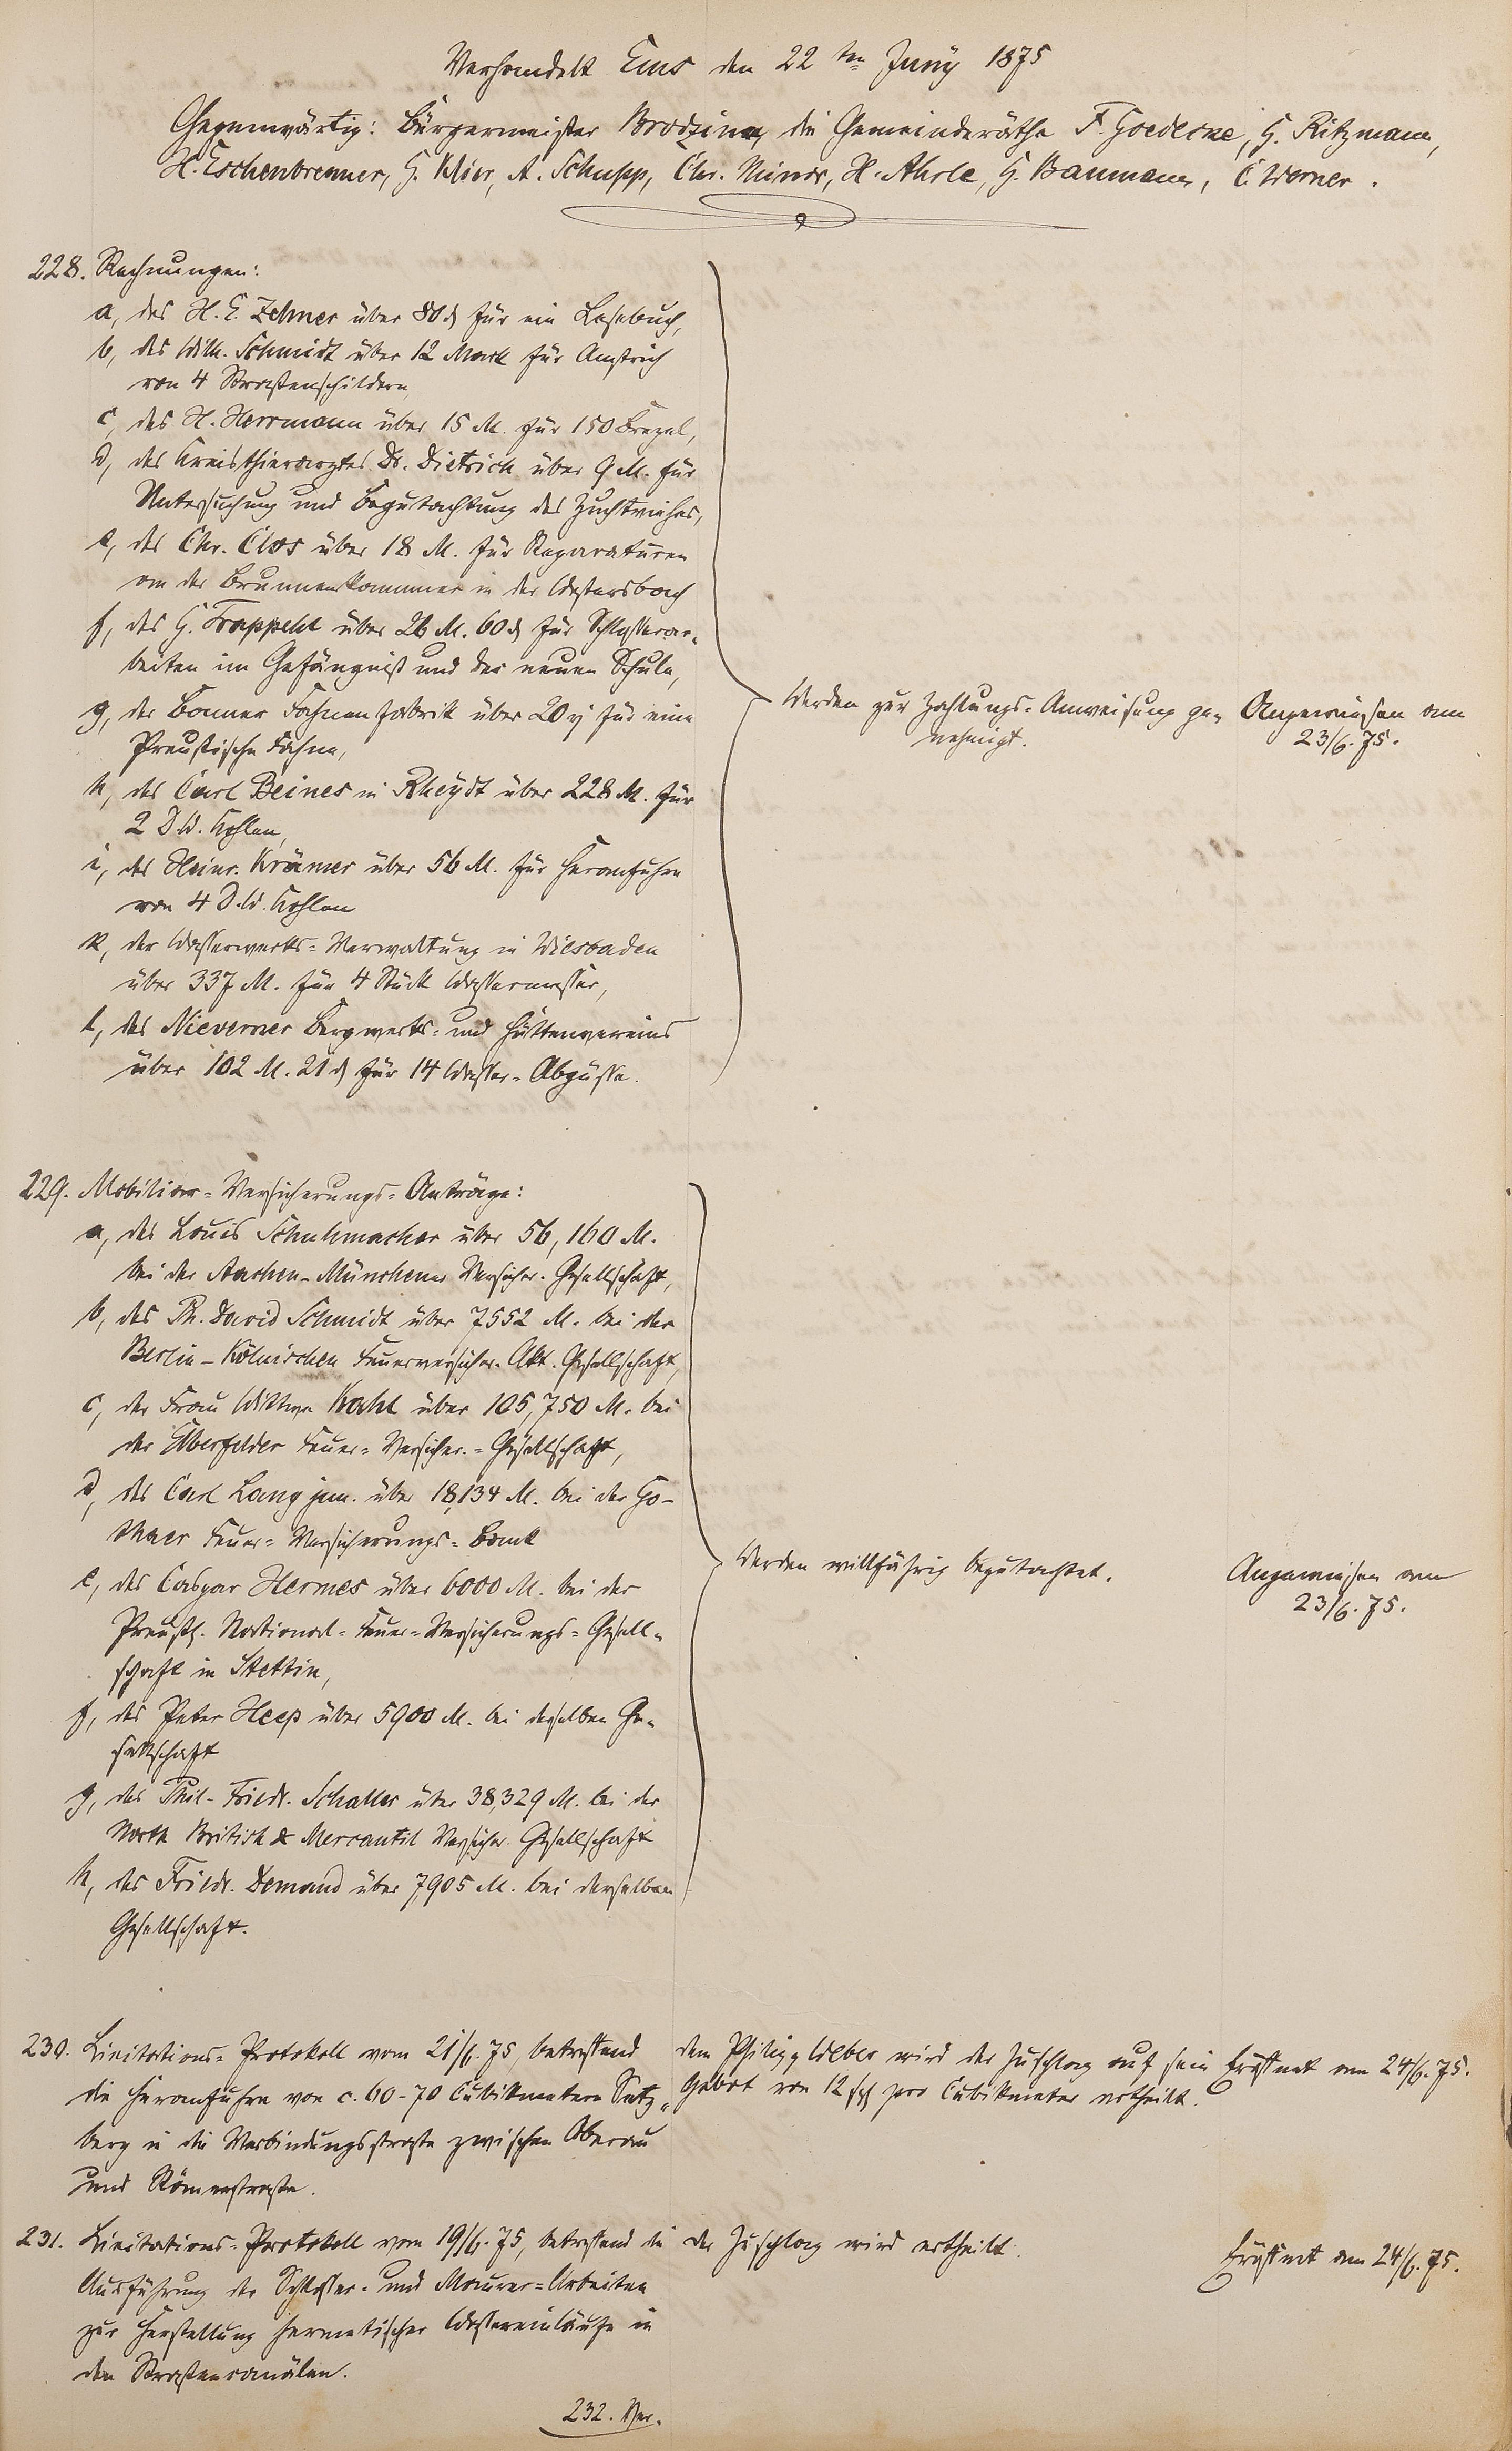 Verhandelt Ems den 22ten Juny 1875
Gegenwärtig: Bürgermeister Brodzina, die Gemeinderäthe F. Goedecke, G. Ritzmann,
H. Eschenbrenner, G. Klier, A. Schupp, Chr. Minor, H. Ahrle, G. Baumann, C. Werner.
228. Rechnungen:
a, des H. E. Zehner über 80 ₰ für ein Lesebuch,
b, des Wilh. Schmidt über 12 Mark für Anstrich
von 4 Straßenschildern,
c, des H. Herrmann über 15 M. für 150 Brezel,
d, des Kreisthierarztes Dr. Dietrich über 9 M. für
Untersuchung und Begutachtung des Zuchtviehes,
e, des Chr. Clos über 18 M. für Reparaturen
an der Brunnenkammer in der Westersbach
f, des G. Trappehl über 26 M. 60 ₰ für Schlosserar-
beiten im Gefängniß und der neuen Schule,
g, der Bonner Fahnenfabrik über 20 M. für eine
Preußische Fahne,
h, des Carl Beines in Rheydt über 228 M. für
2 D.W. Kohlen,
i, des Heinr. Krämer über 56 M. für Heranfuhre
von 4 D.W. Kohlen
k, der Wasserwerks-Verwaltung in Wiesbaden
über 337 M. für 4 Stück Wassermesser,
l, des Nieverner Bergwerks- und Hüttenvereins
über 102 M. 21 ₰ für 14 Wasser-Abgüsse.
Werden zur Zahlungs-Anweisung ge-
nehmigt.
Angewiesen am
23/6. 75.
229. Mobiliar-Versicherungs-Anträge:
a, des Louis Schuhmacher über 56,160 M.
bei der Aachen-Münchener Versicher. Gesellschaft,
b, des Ph. David Schmidt über 7552 M. bei der
Berlin-Kölnischen Feuerversicher. Akt. Gesellschaft,
c, der Frau Wittwe Kahl über 105,750 M. bei
der Elberfelder Feuer-Versicher.-Gesellschaft,
d, des Carl Lang jun. über 18,134 M. bei der Go-
thaer Feuer-Versicherungs-Bank
e, des Caspar Hermes über 6000 M. bei der
Preuß. National-Feuer-Versicherungs-Gesell-
schaft in Stettin,
f, des Peter Heep über 5900 M. bei derselben Ge-
sellschaft
g, des Phil. Friedr. Schaller über 38,329 M. bei der
North British & Mercantil Versicher. Gesellschaft
h, des Friedr. Demand über 7,905 M. bei derselben
Gesellschaft.
Werden willfährig begutachtet.
Angewiesen am
23/6. 75.
230. Licitations-Protokoll vom 21/6. 75, betreffend
die Heranfuhre von c. 60-70 Cubikmetern Satz-
berg in die Verbindungsstraße zwischen Oberau
und Römerstraße.
dem Philipp Weber wird der Zuschlag auf sein
Gebot von 12 Sgr pro Cubikmeter ertheilt.
Eröffnet am 24/6. 75.
231. Licitations-Protokoll vom 19/6. 75, betreffend die
Ausführung der Schlosser- und Maurer-Arbeiten
zur Herstellung hermetischer Wassereinläufe in
den Straßencanälen.
der Zuschlag wird ertheilt.
Eröffnet am 24/6. 75.
232. Ver-